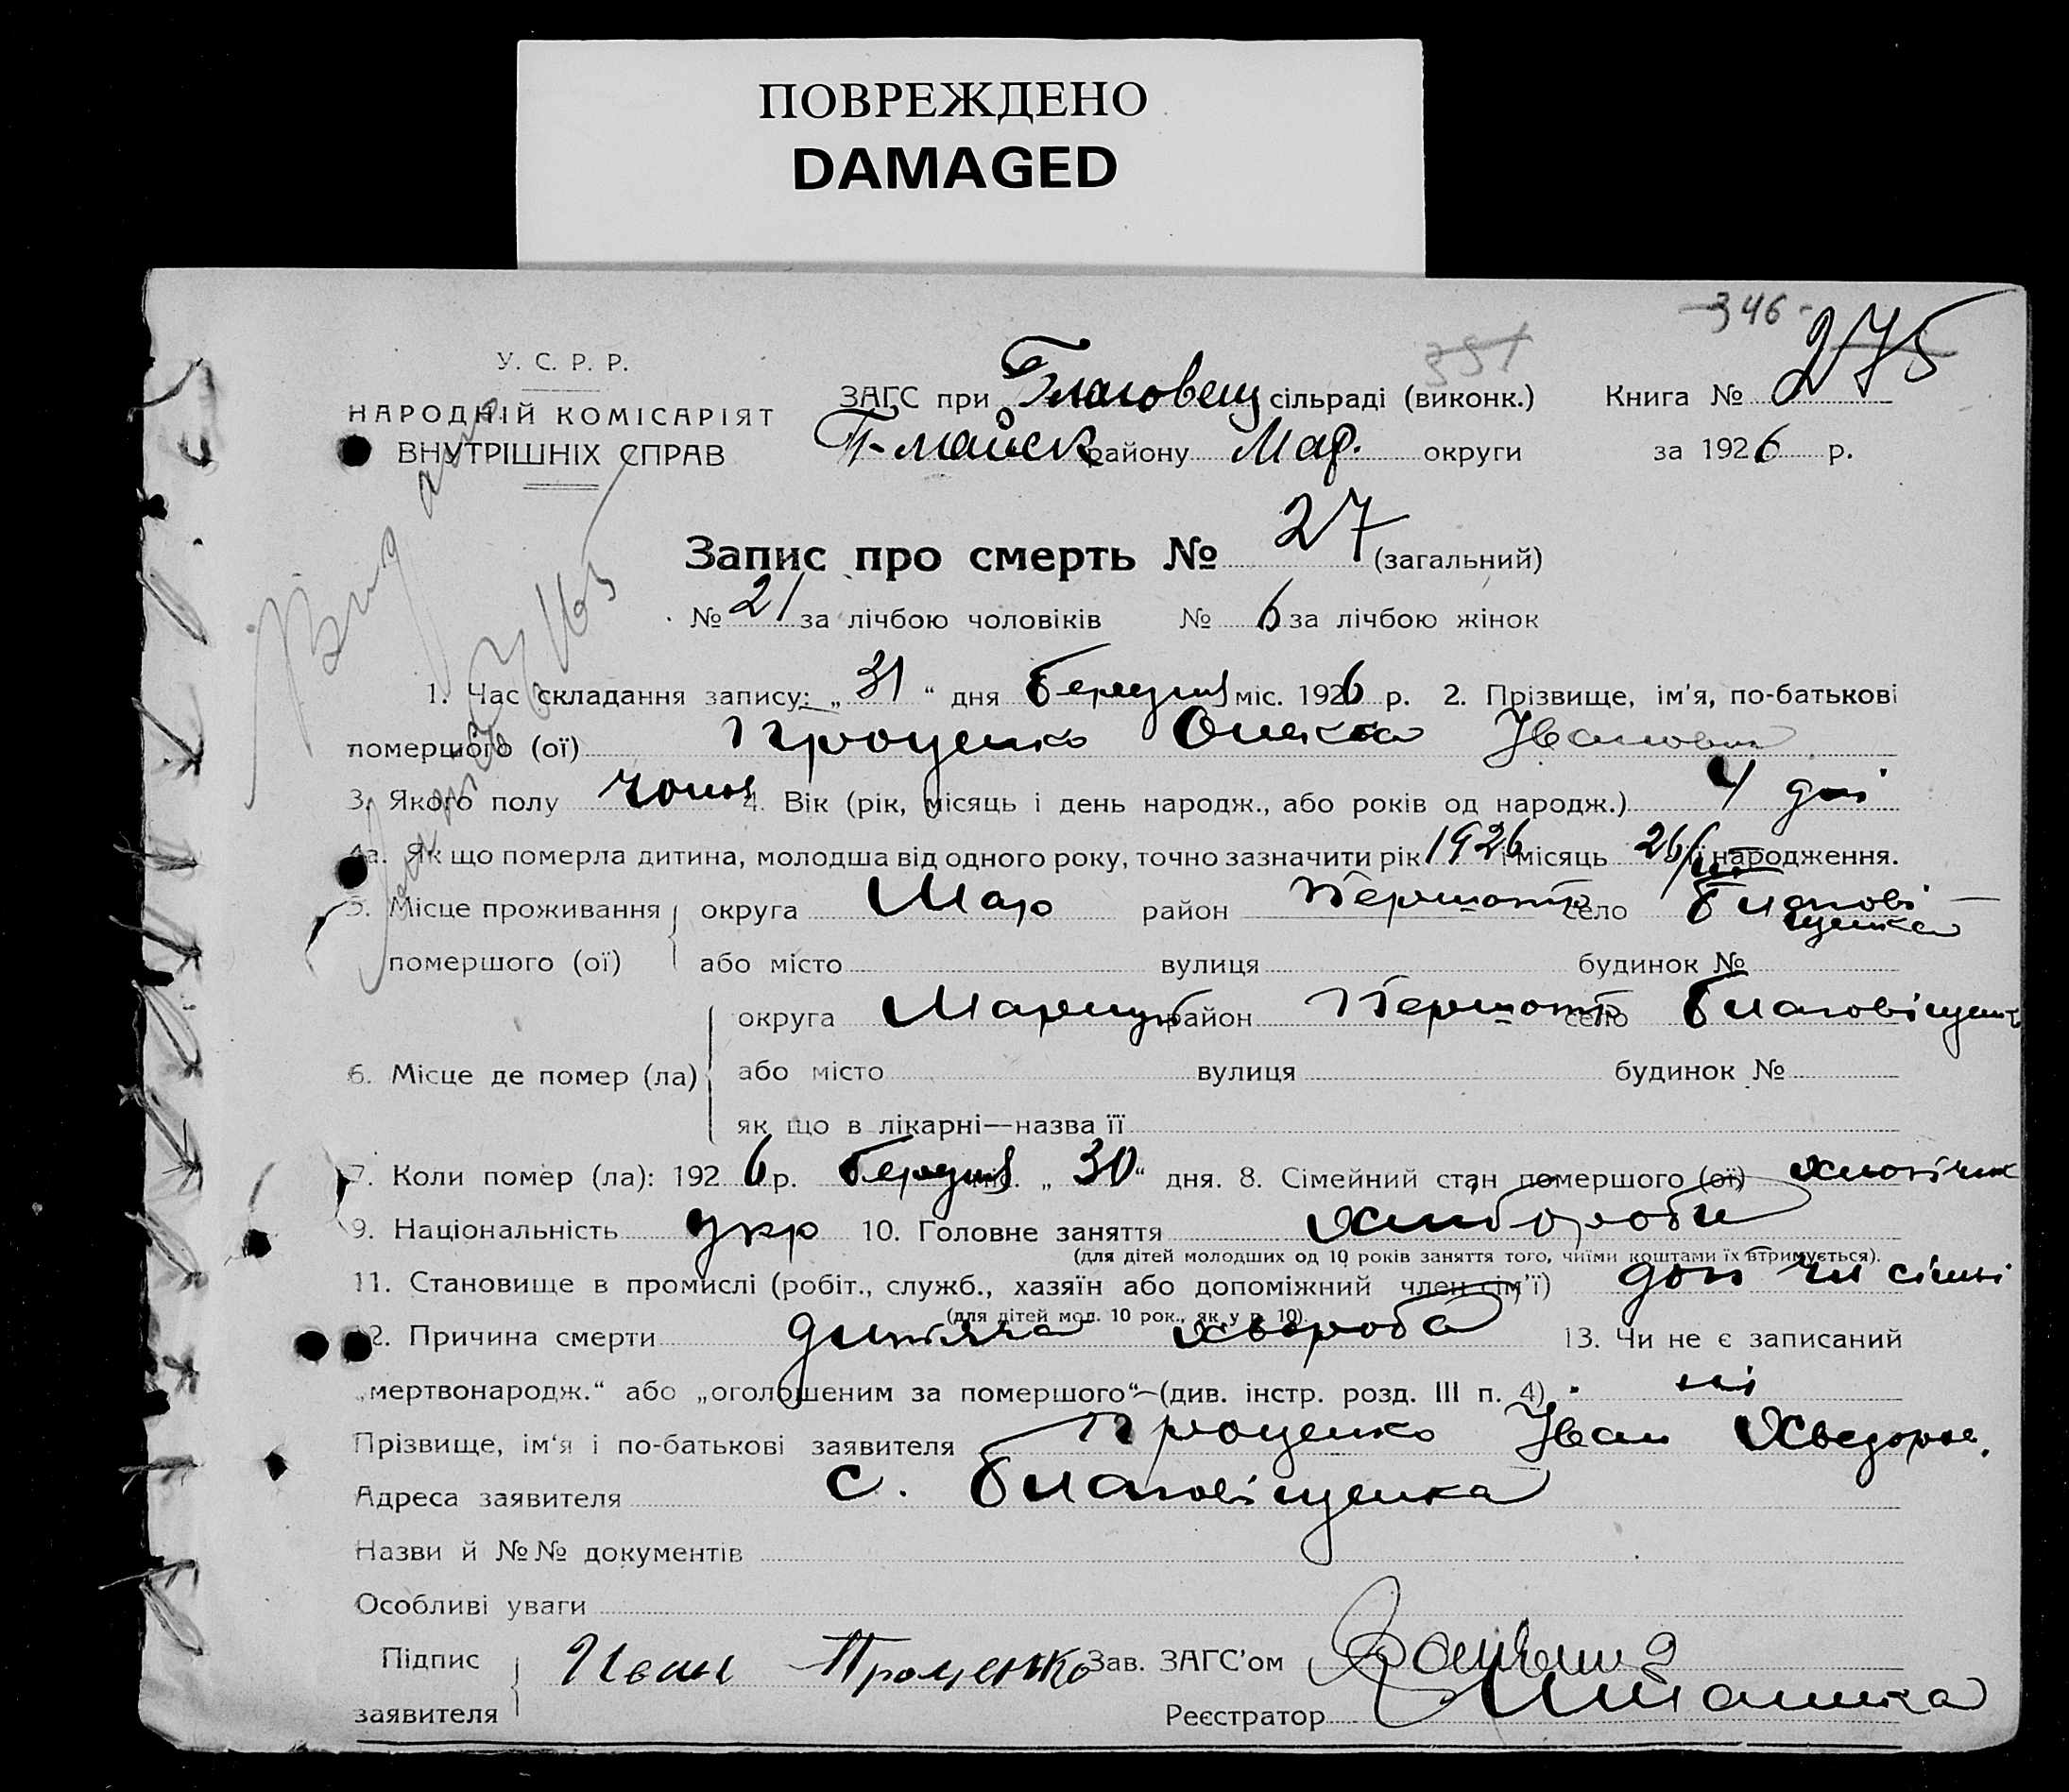 ПОВРЕЖДЕНО
DAMAGED
346
351
275
У. С. Р. Р.
НАРОДНІЙ КОМІСАРІЯТ
ВНУТРІШНІХ СПРАВ
ЗАГС при Благовещ сільраді (виконк.) Книга №
району Мар. округи за 1926 р.
Запис про смерть № 27 (загальний)
№ 21 за лічбою чоловіків № 6 за лічбою жінок
1. Час складання запису: „31“ дня березня міс. 1926 р. 2. Прізвище, ім'я, по-батькові
помершого (ої) Проценко Олекса Іванович
3. Якого полу 4. Вік (рік, місяць і день народж., або років од народж.) 4 дні
4а. Як що померла дитина, молодша від одного року, точно зазначити рік 1926 і місяць 26/III народження.
5. Місце проживання округа Мар район село Благові
щенка
помершого (ої) або місто вулиця будинок №
округа Маріуп район село Благовіщенк
6. Місце де помер (ла) або місто вулиця будинок №
як що в лікарні—назва її
7. Коли помер (ла): 1926 р. березня міс. „30“ дня. 8. Сімейний стан помершого (ої) хлопчик
9. Національність укр 10. Головне заняття хлібороби
(для дітей молодших од 10 років заняття того, чиїми коштами їх втримується).
11. Становище в промислі (робіт., служб., хазяїн або допоміжний член сім'ї) доп чл сімї
(для дітей мол. 10 рок., як у р. 10).
12. Причина смерти дитяча хвороба 13. Чи не є записаний
„мертвонародж.“ або „оголошеним за помершого“—(див. інстр. розд. III п. 4) ні
Прізвище, ім'я і по-батькові заявителя Проценко Іван Хведоров.
Адреса заявителя с. Благовіщенка
Назви й №№ документів
Особливі уваги
Підпис
заявителя Иван Проценко Зав. ЗАГС'ом
Реєстратор